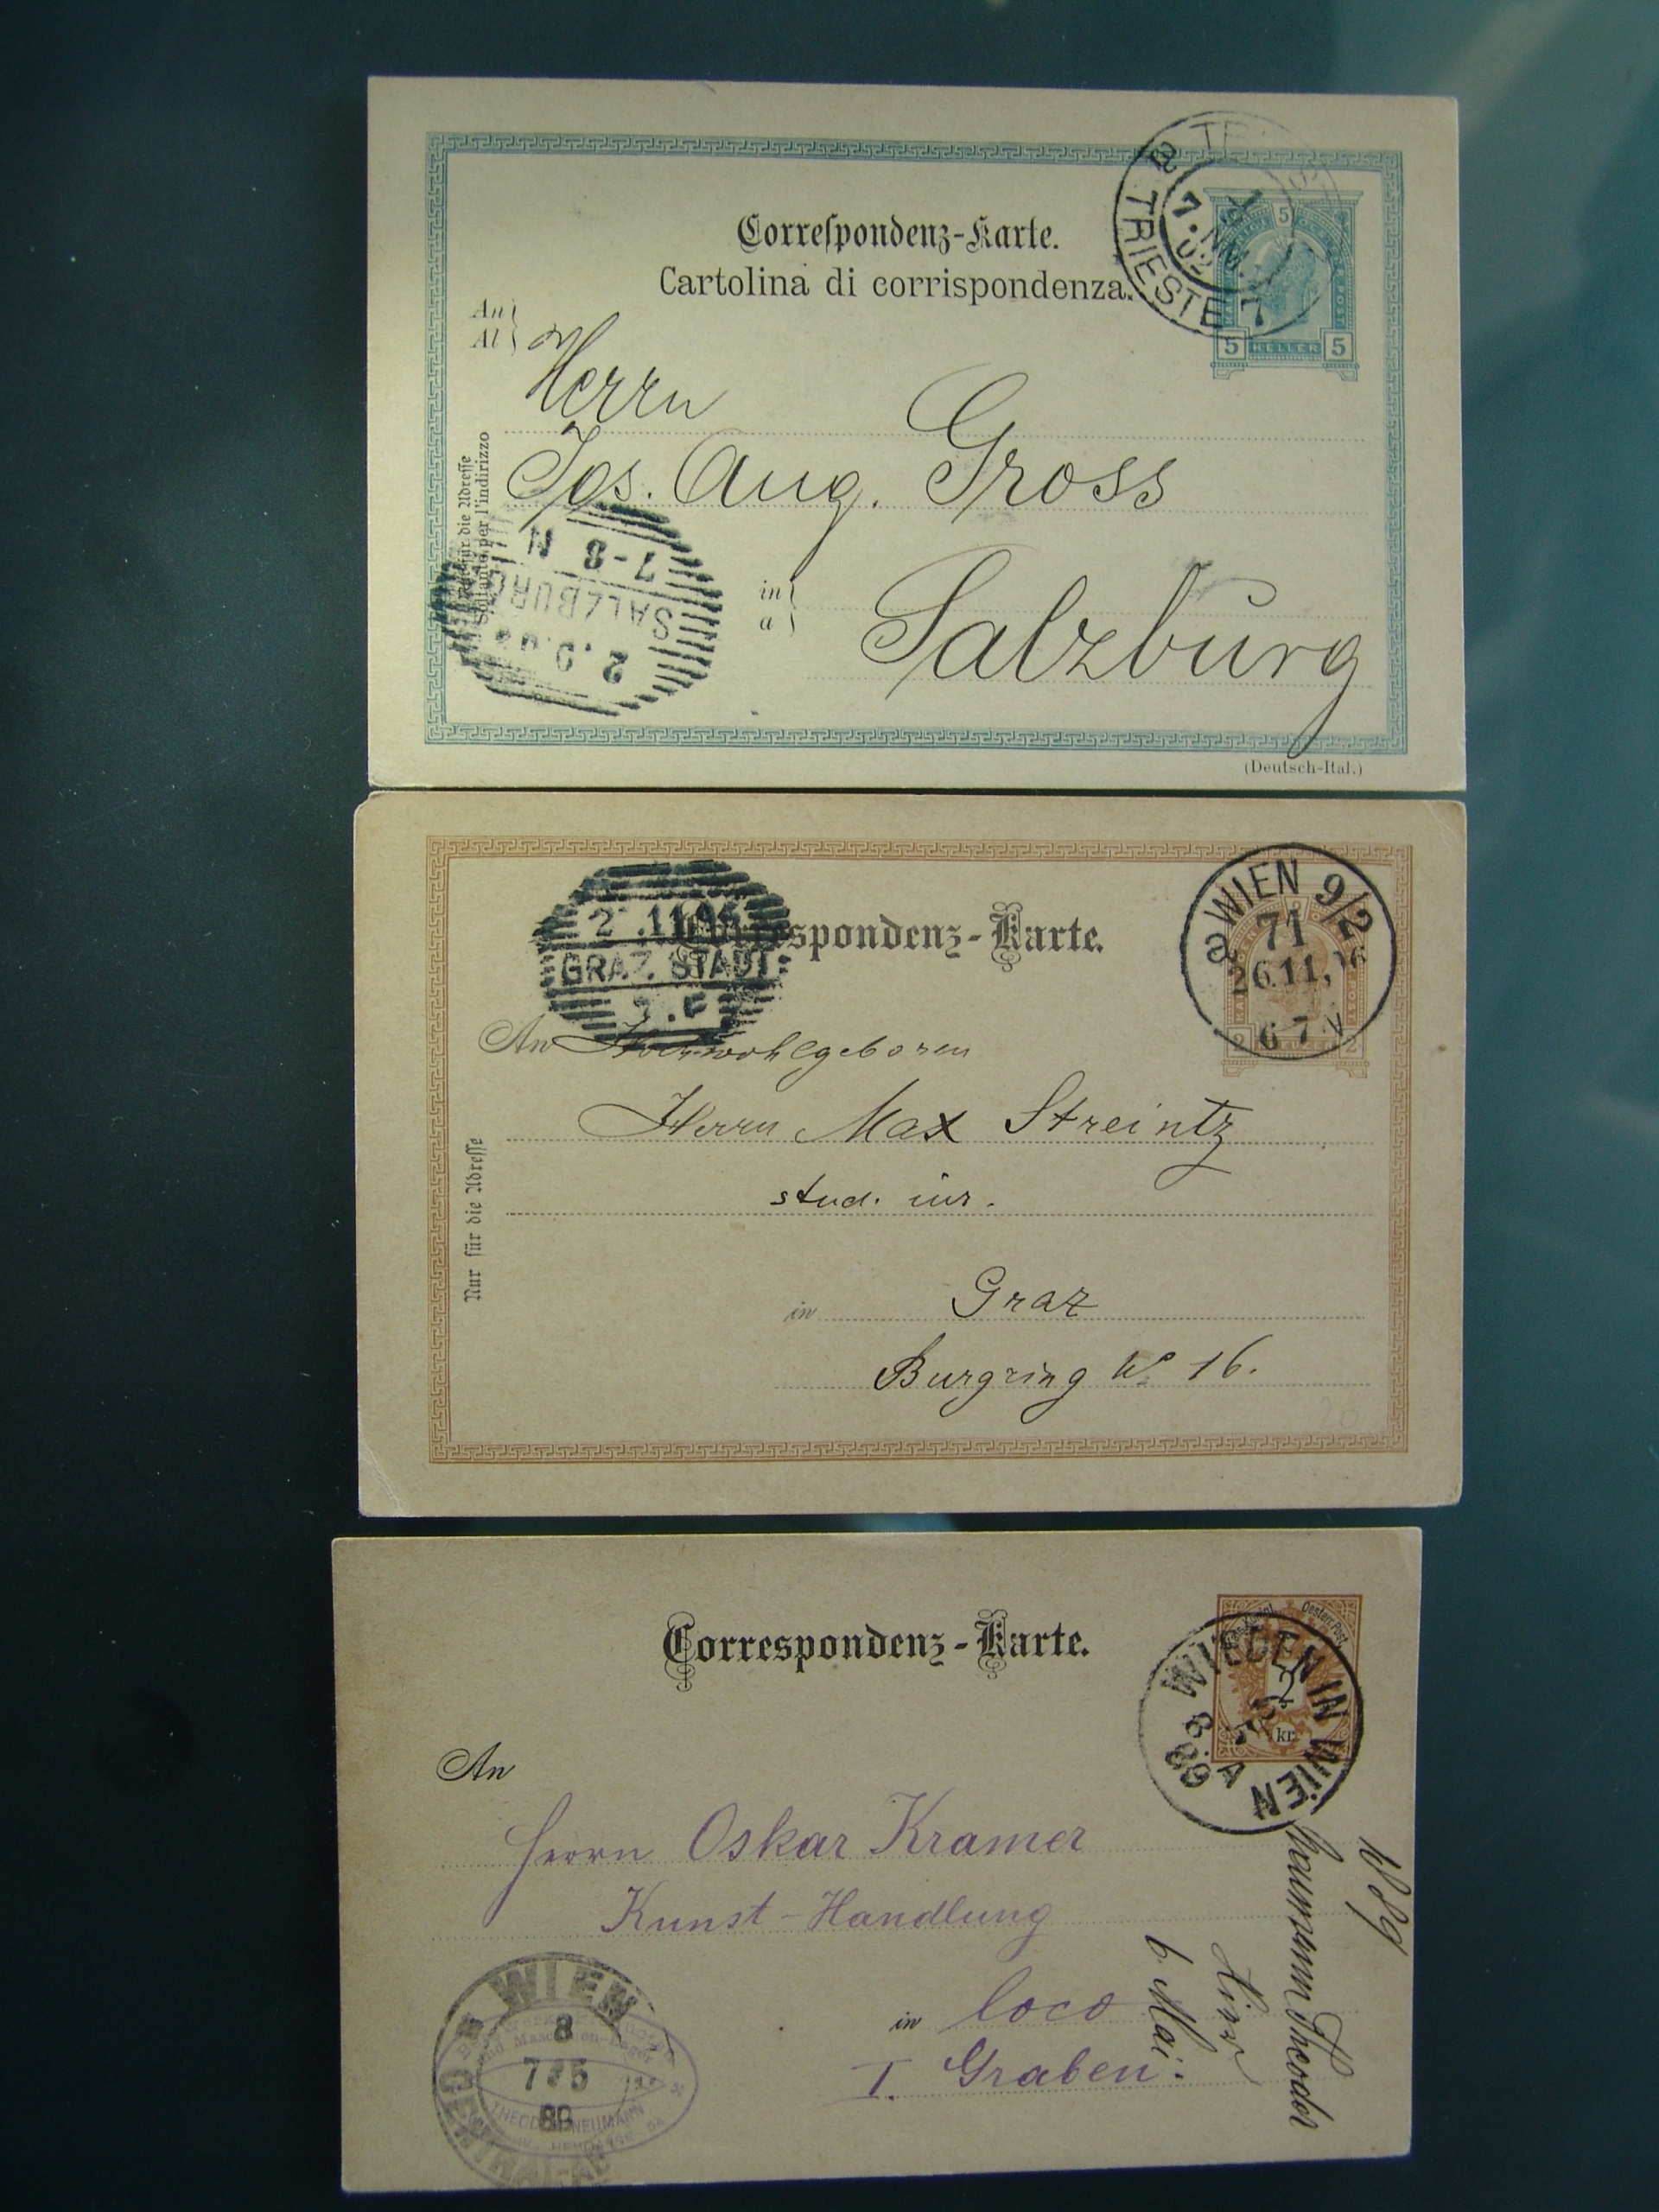 Correspondenz-Karte.
Cartolina di corrispondenza.
TRIESTE 7
7.N
02
5
5 HELLER 5
An
Al
Herrn
Jos. Aug. Gross
in
a
Salzburg
Nur für die Adresse
Soltanto per l'indirizzo
7-8 N
SALZBURG
2.9.02
(Deutsch-Ital.)
Correspondenz-Karte.
GRAZ STADT
WIEN 9/2
71
26.11.96
6 7 N
2 KREUZER 2
An Hochwohlgeboren
Herrn Max Streintz
stud. iur.
in Graz
Burgring No 16.
Nur für die Adresse
Correspondenz-Karte.
Oesterr. Post.
2
kr.
WIEDEN IN WIEN
8.
89
A
WIEN
An
Herrn Oskar Kramer
Kunst-Handlung
in loco
I. Graben.
WIEN
8
7 5
89
THEODOR NEUMANN
Neumann Theodor
Wien
6 Mai